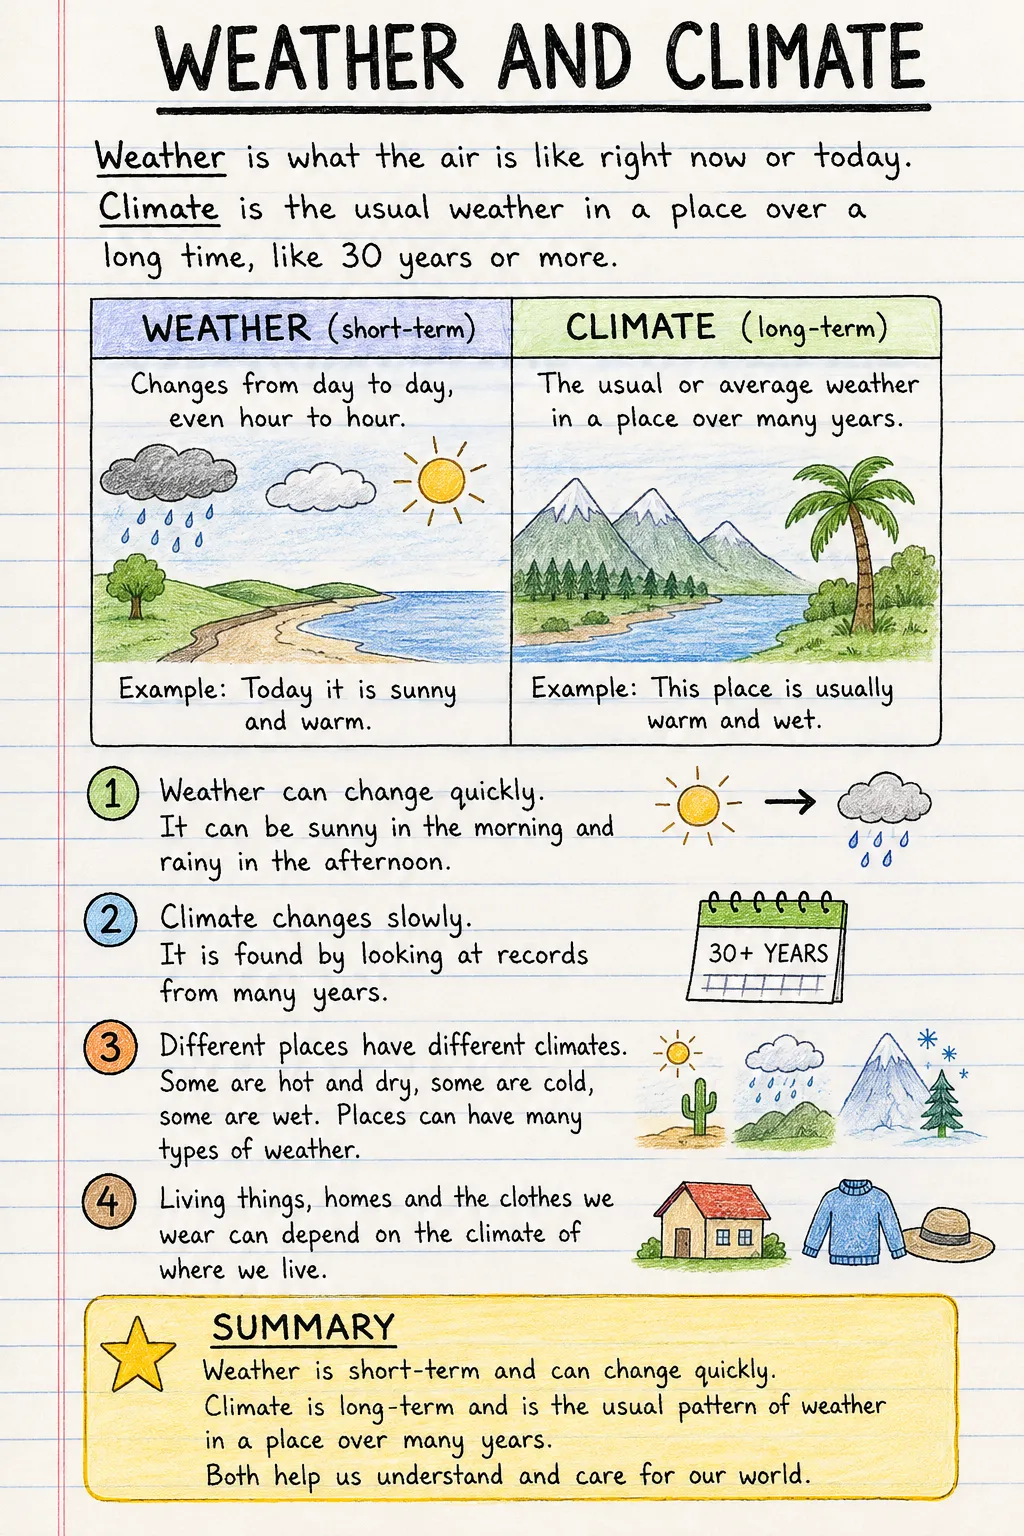 WEATHER AND CLIMATE
Weather is what the air is like right now or today.
Climate is the usual weather in a place over a
long time, like 30 years or more.
WEATHER (short-term)
Changes from day to day,
even hour to hour.
Example: Today it is sunny
and warm.
CLIMATE (long-term)
The usual or average weather
in a place over many years.
Example: This place is usually
warm and wet.
1 Weather can change quickly.
It can be sunny in the morning and
rainy in the afternoon.
2 Climate changes slowly.
It is found by looking at records
from many years.
30+ YEARS
3 Different places have different climates.
Some are hot and dry, some are cold,
some are wet. Places can have many
types of weather.
4 Living things, homes and the clothes we
wear can depend on the climate of
where we live.
SUMMARY
Weather is short-term and can change quickly.
Climate is long-term and is the usual pattern of weather
in a place over many years.
Both help us understand and care for our world.